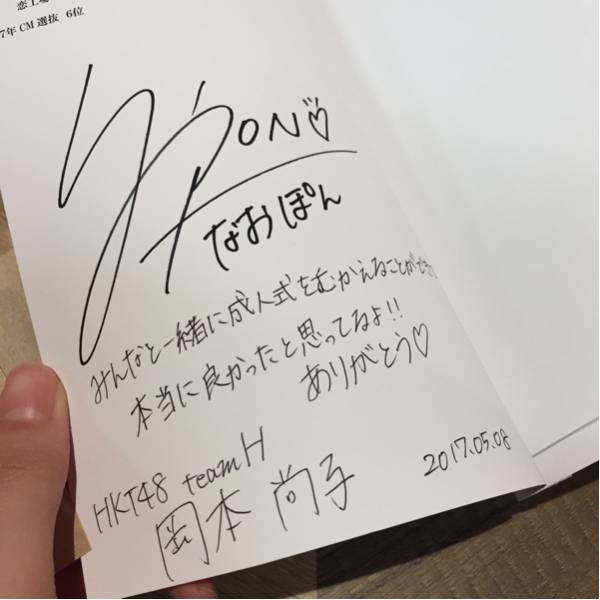 恋工場
7年 CM 選抜 6位
PON
なおぽん
みんなと一緒に成人式をむかえることができ
本当に良かったと思ってるよ!!
ありがとう♡
HKT48 teamH
岡本 尚子
2017.05.08